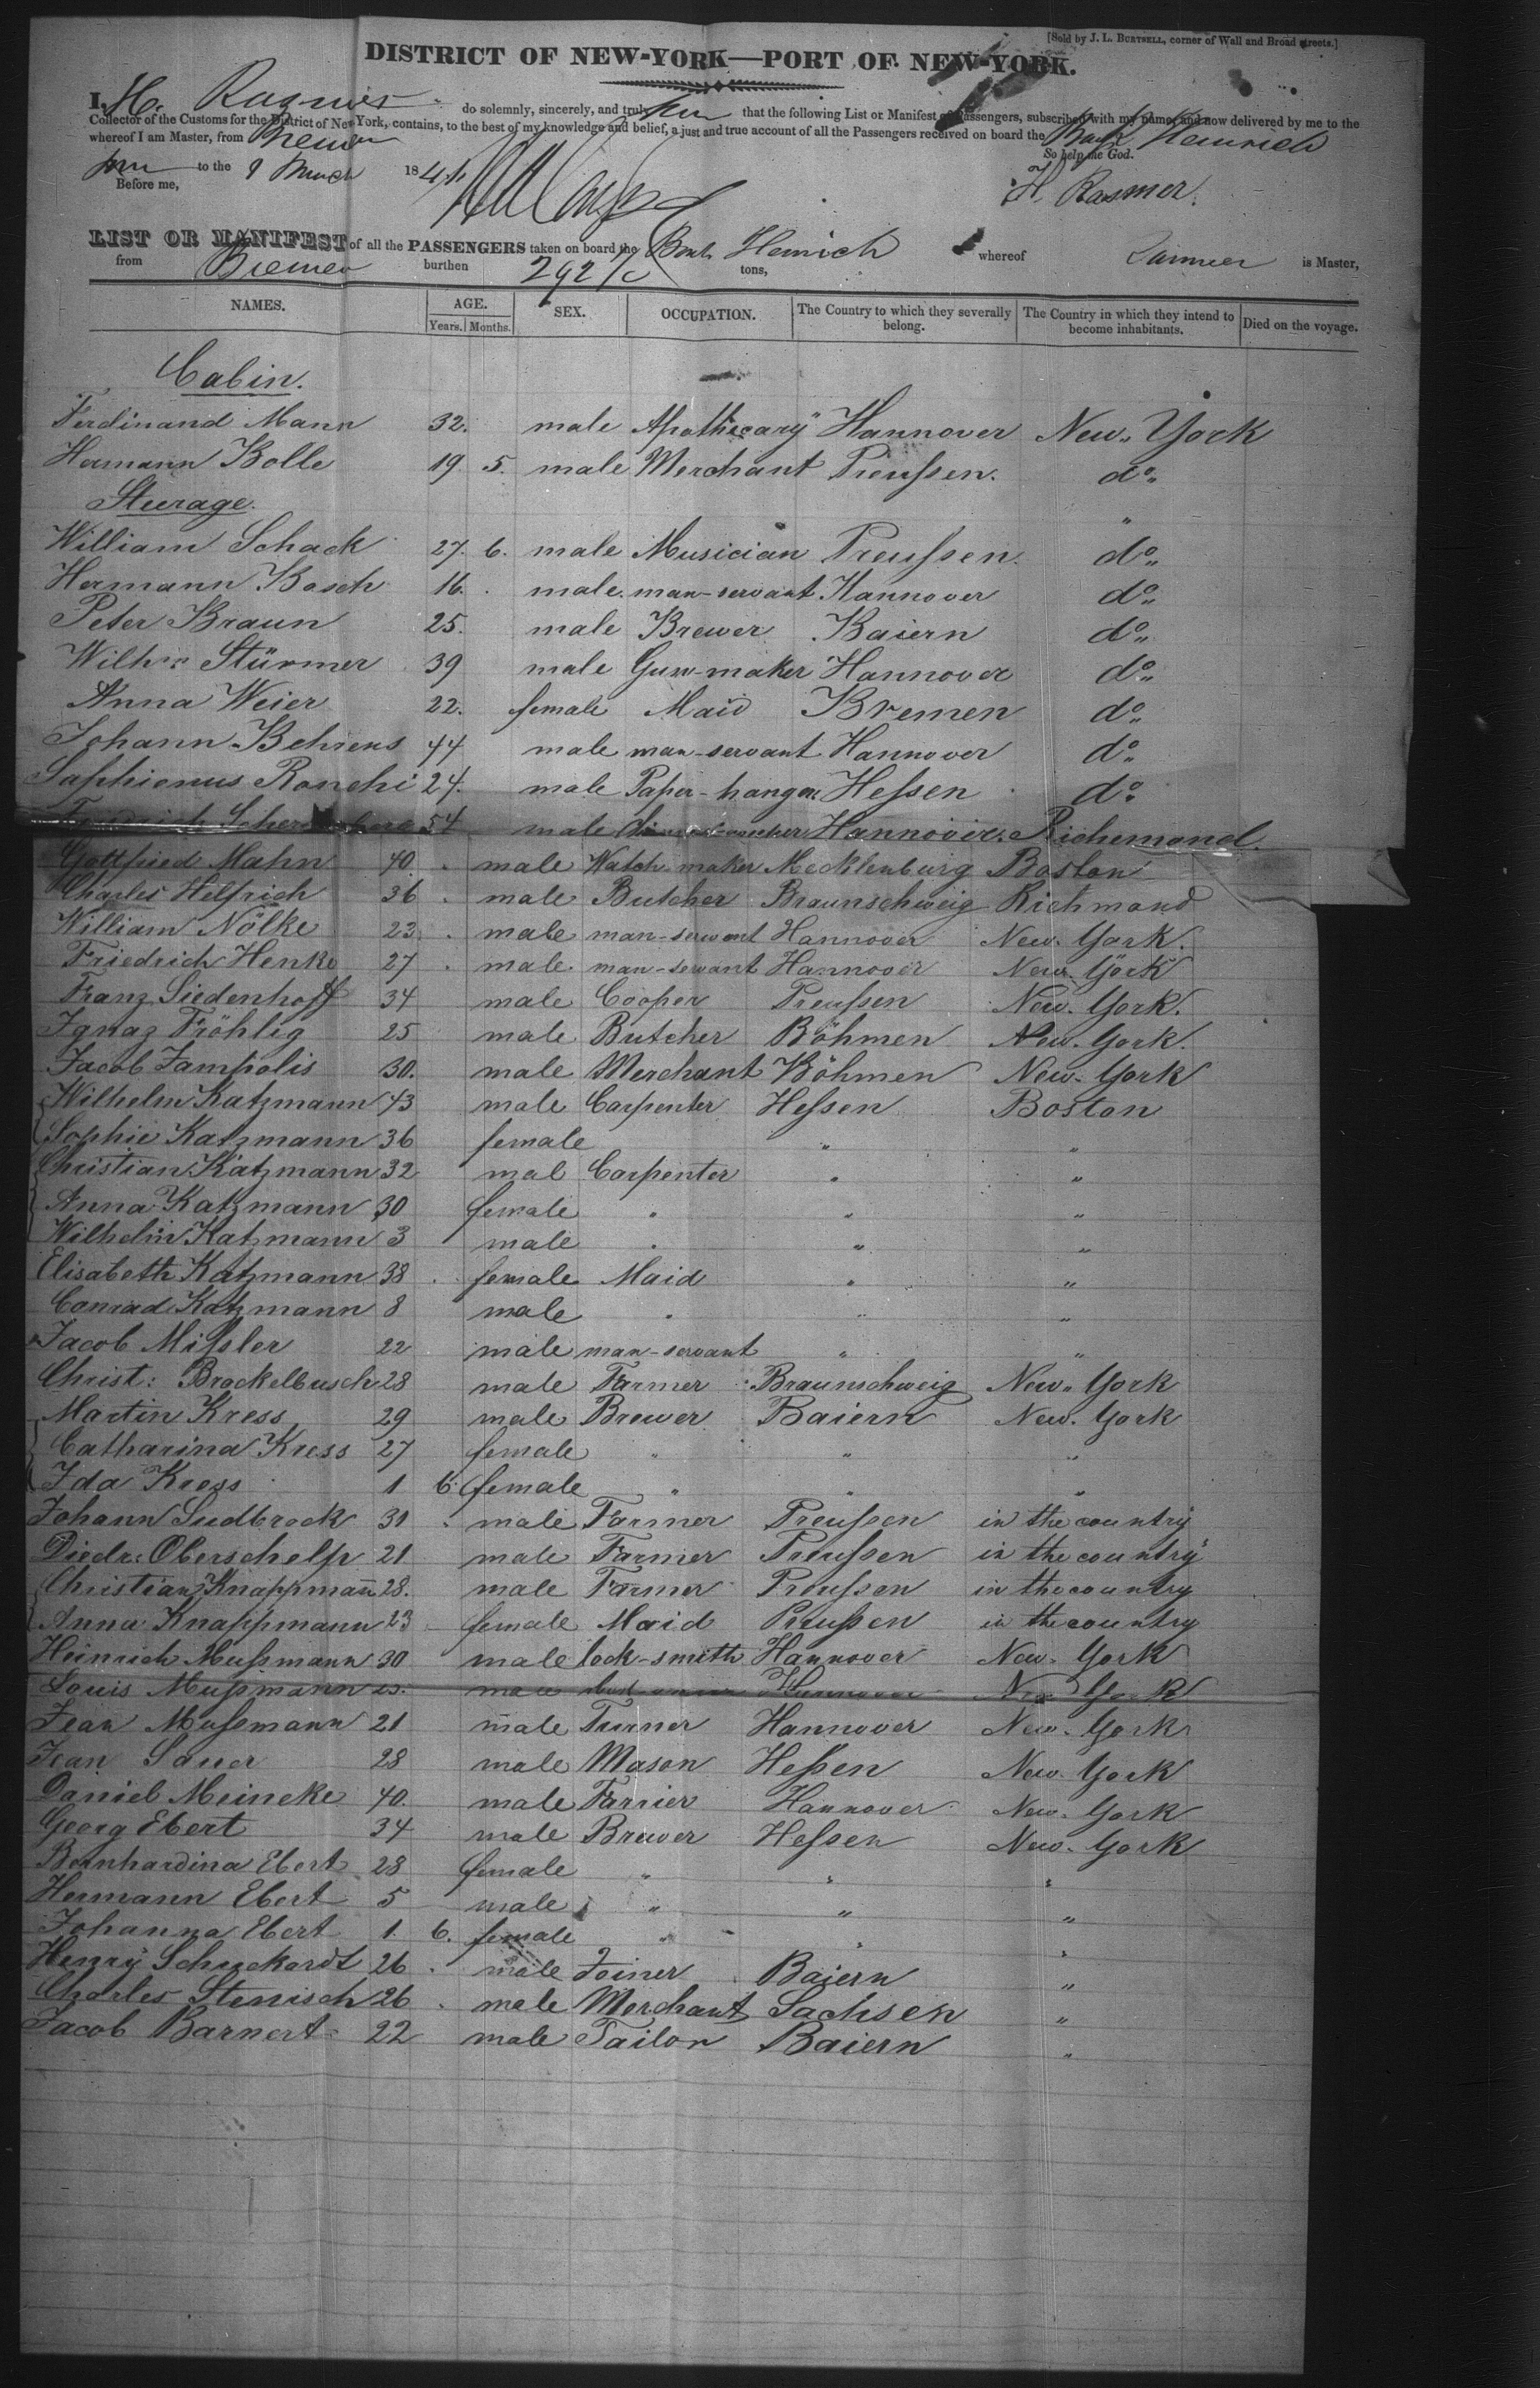 [Sold by J. L. BURTSELL, corner of Wall and Broad streets.]
DISTRICT OF NEW-YORK—PORT OF NEW-YORK.
I, H. do solemnly, sincerely, and truly that the following List or Manifest of Passengers, subscribed with my name, and now delivered by me to the
Collector of the Customs for the District of New York, contains, to the best of my knowledge and belief, a just and true account of all the Passengers received on board the Bark Heinrich
whereof I am Master, from Bremen So help me God.
to the 9 March 184
Before me,
H. Rasmer.
LIST OR MANIFEST of all the PASSENGERS taken on board the Heinrich whereof is Master,
from Bremen burthen 292 tons,
NAMES. AGE. SEX. OCCUPATION. The Country to which they severally belong. The Country in which they intend to become inhabitants. Died on the voyage.
Years. Months.
Cabin.
Ferdinand Mann 32. male Apothecary Hannover New-York
Hermann Bolle 19 5. male Merchant Preußen. do„
Steerage.
William Schack 27. 6. male Musician Preußen. do„
Hermann Bosch 16. male. man-servant Hannover do„
Peter Braun 25. male Brewer Baiern do„
Wilhm Stürmer 39 male Gun-maker Hannover do„
Anna Weier 22. female Maid Bremen do„
Johann Behrens 44 male man-servant Hannover do„
Saphienus Ronchi 24. male Paper-hanger Heßen do„
54 male Hannover. Richemond.
Gottfried Mahn 40. male Watch-maker Mecklenburg Boston
Charles Helfrich 36 male Butcher Braunschweig Richmond
William Nölke 23. male man-servant Hannover New-York.
Friedrich Henke 27 male. man-servant Hannover New-York
Franz Siedenhoff 34 male Cooper Preußen New-York.
Ignaz Fröhlig 25 male Butcher Böhmen New-York.
Jacob Jampolis 30. male Merchant Böhmen New-York
Wilhelm Katzmann 43 male Carpenter Heßen Boston
Sophie Katzmann 36 female „ „
Christian Katzmann 32 mal Carpenter „ „
Anna Katzmann 30 female „ „ „
Wilhelm Katzmann 3 male „ „ „
Elisabeth Katzmann 38 female Maid „ „
Conrad Katzmann 8 male „ „ „
Jacob Mißler 22 male man-servant „ „
Christ: Brackelbusch 28 male Farmer Braunschweig New-York
Martin Kress 29 male Brewer Baiern New-York
Catharina Kress 27 female „ „ „
Ida Kress 1 6. female „ „ „
Johann Sudbrock 31 male Farmer Preußen in the country
Diedr: Oberschelp 21 male Farmer Preußen in the country
Christian Knappmann 28. male Farmer Preußen in the country
Anna Knappmann 23 female Maid Preußen in the country
Heinrich Mußmann 30 male lock-smith Hannover New-York
Louis Mußmann 25. male Hannover New York
Jean Mußmann 21 male Turner Hannover New-York
Jean Sauer 28 male Mason Heßen New-York
Daniel Meineke 40. male Farrier Hannover New-York
Georg Ebert 34 male Brewer Heßen New-York
Bernhardina Ebert 28 female „ „ „
Hermann Ebert 5 male „ „ „
Johanna Ebert 1. 6. female „ „ „
Henry Schuckardt 26 male Joiner Baiern „
Charles Stenisch 26 male Merchant Sachsen „
Jacob Barnert 22 male Tailor Baiern „